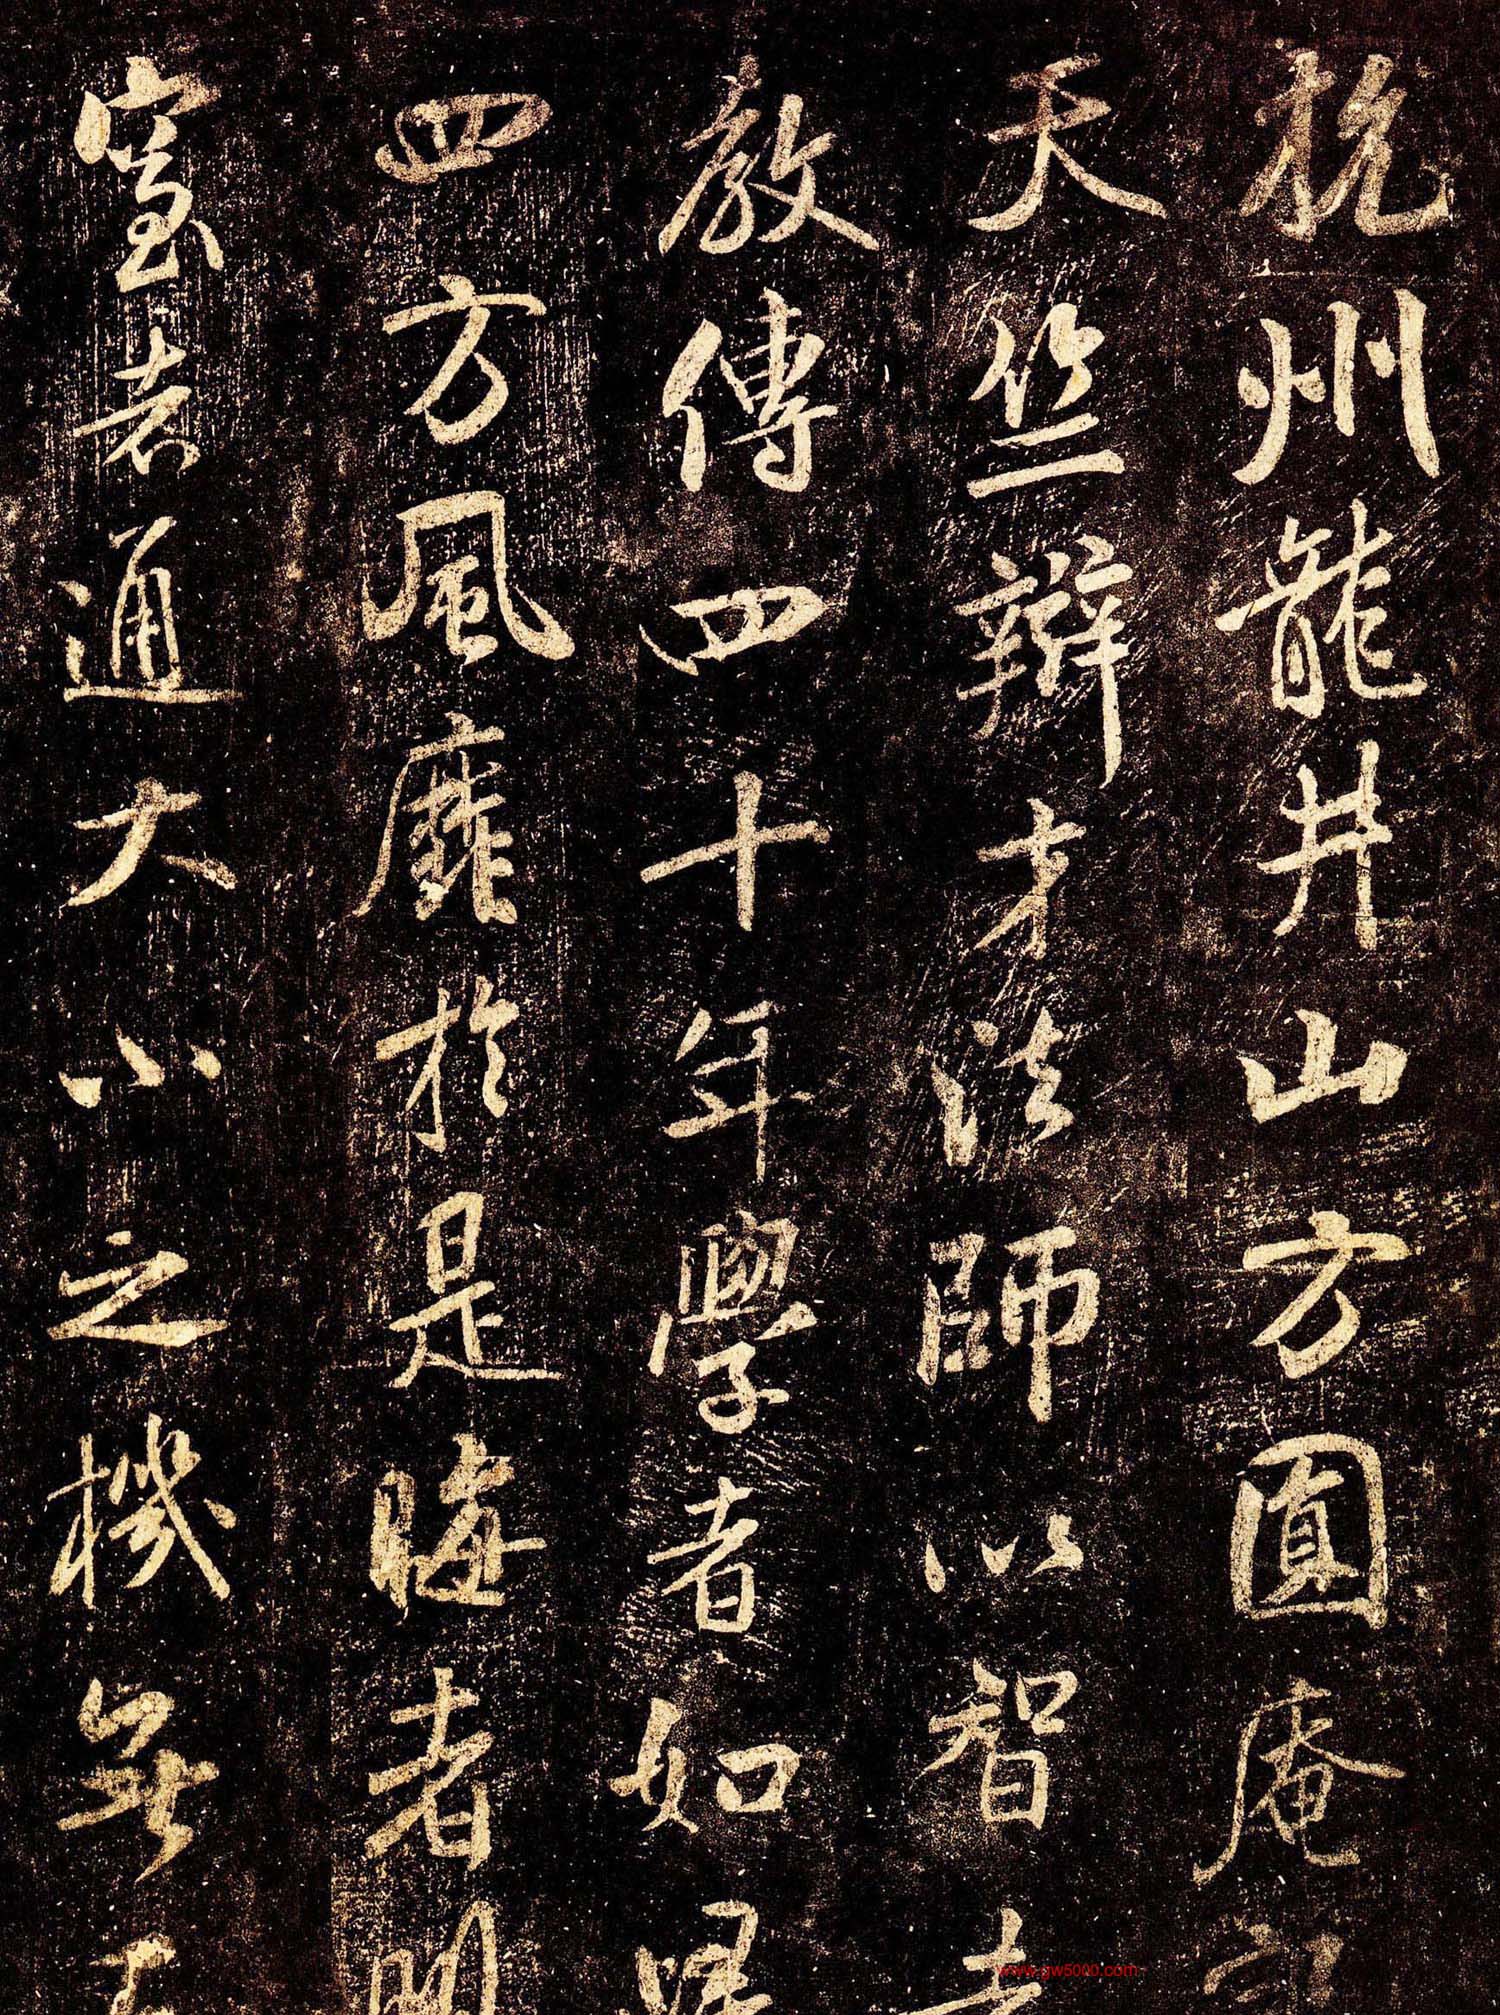 杭州龍井山方圓庵
天竺辯才法師以智
教傳四十年學者如
四方風靡於是晦者明
窒者通大小之機無
www.gw5000.com